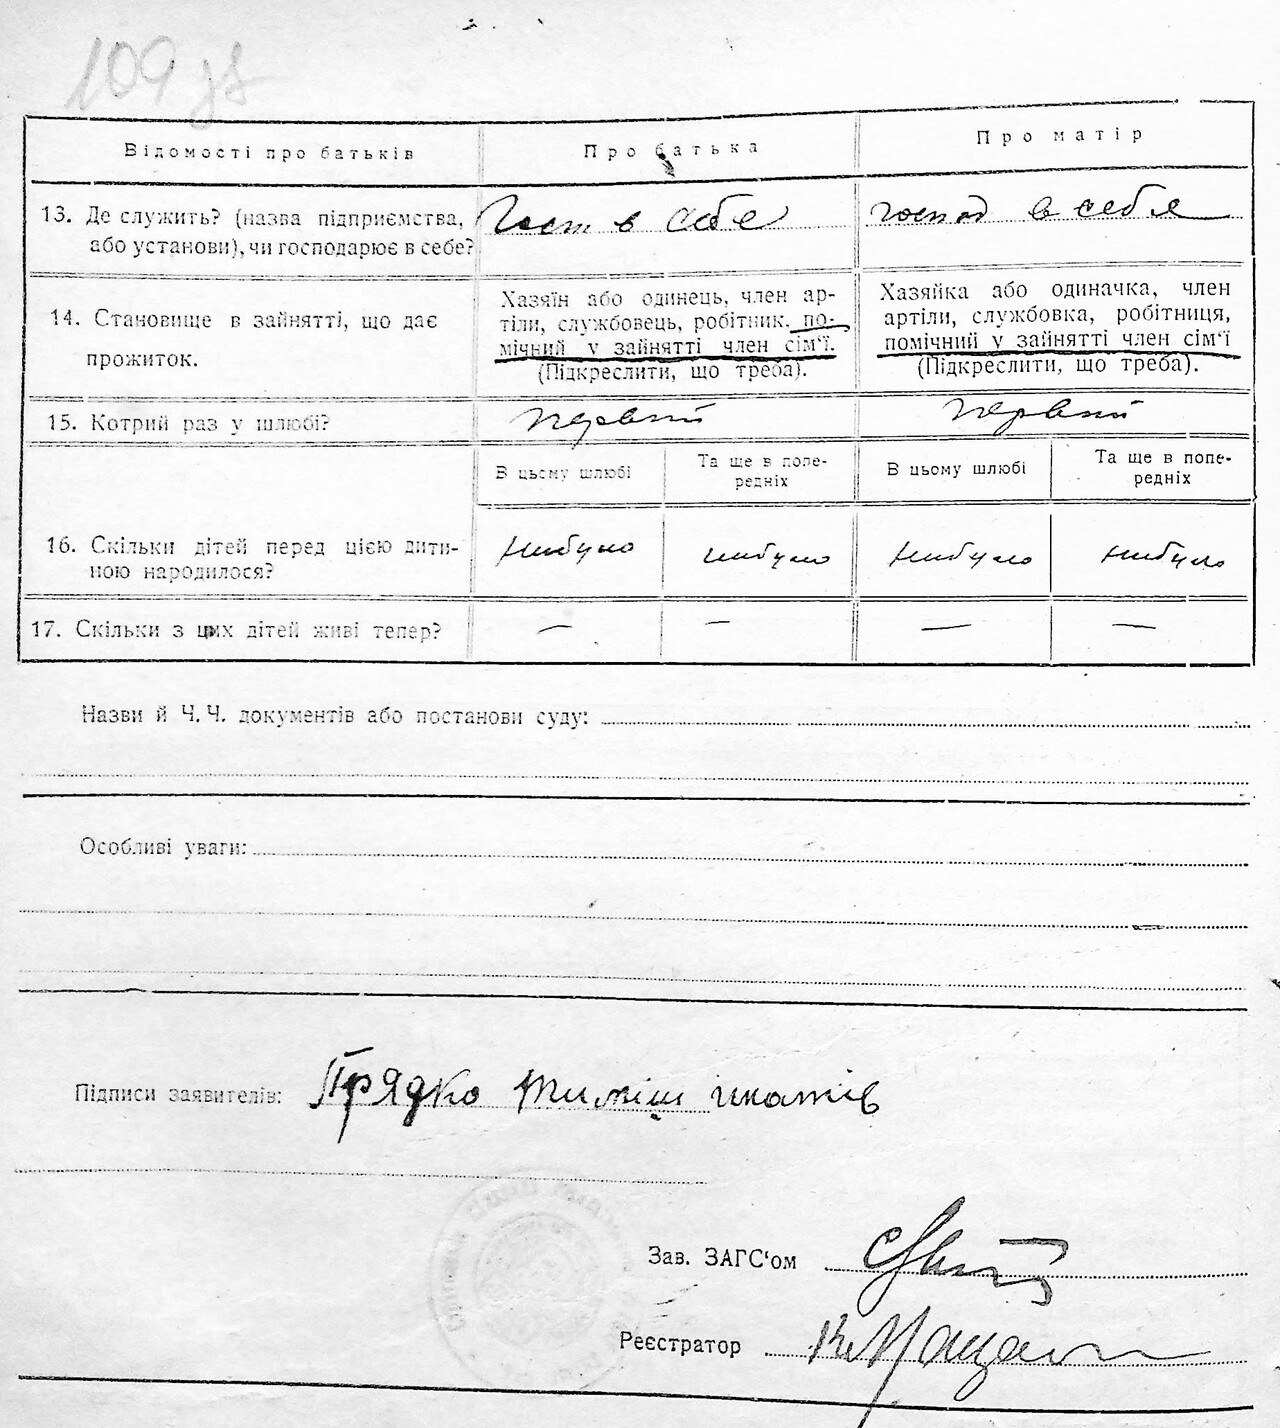 109 зв
Відомості про батьків
Про батька
Про матір
13. Де служить? (назва підприємства, або установи), чи господарює в себе?
Госп в себе
господ в себя
14. Становище в зайнятті, що дає прожиток.
Хазяїн або одинець, член ар-
тіли, службовець, робітник. по-
мічний у зайнятті член сім‘ї.
(Підкреслити, що треба).
Хазяйка або одиначка, член
артіли, службовка, робітниця,
помічний у зайнятті член сім‘ї
(Підкреслити, що треба).
15. Котрий раз у шлюбі?
первий
первий
В цьому шлюбі
Та ще в попе-
редніх
В цьому шлюбі
Та ще в попе-
редніх
16. Скільки дітей перед цією дити-
ною народилося?
нибуло
нибуло
нибуло
нибуло
17. Скільки з цих дітей живі тепер?
—
—
—
—
Назви й Ч. Ч. документів або постанови суду:
Особливі уваги:
Підписи заявителів: Прядко Тиміш
Зав. ЗАГС‘ом
Реєстратор